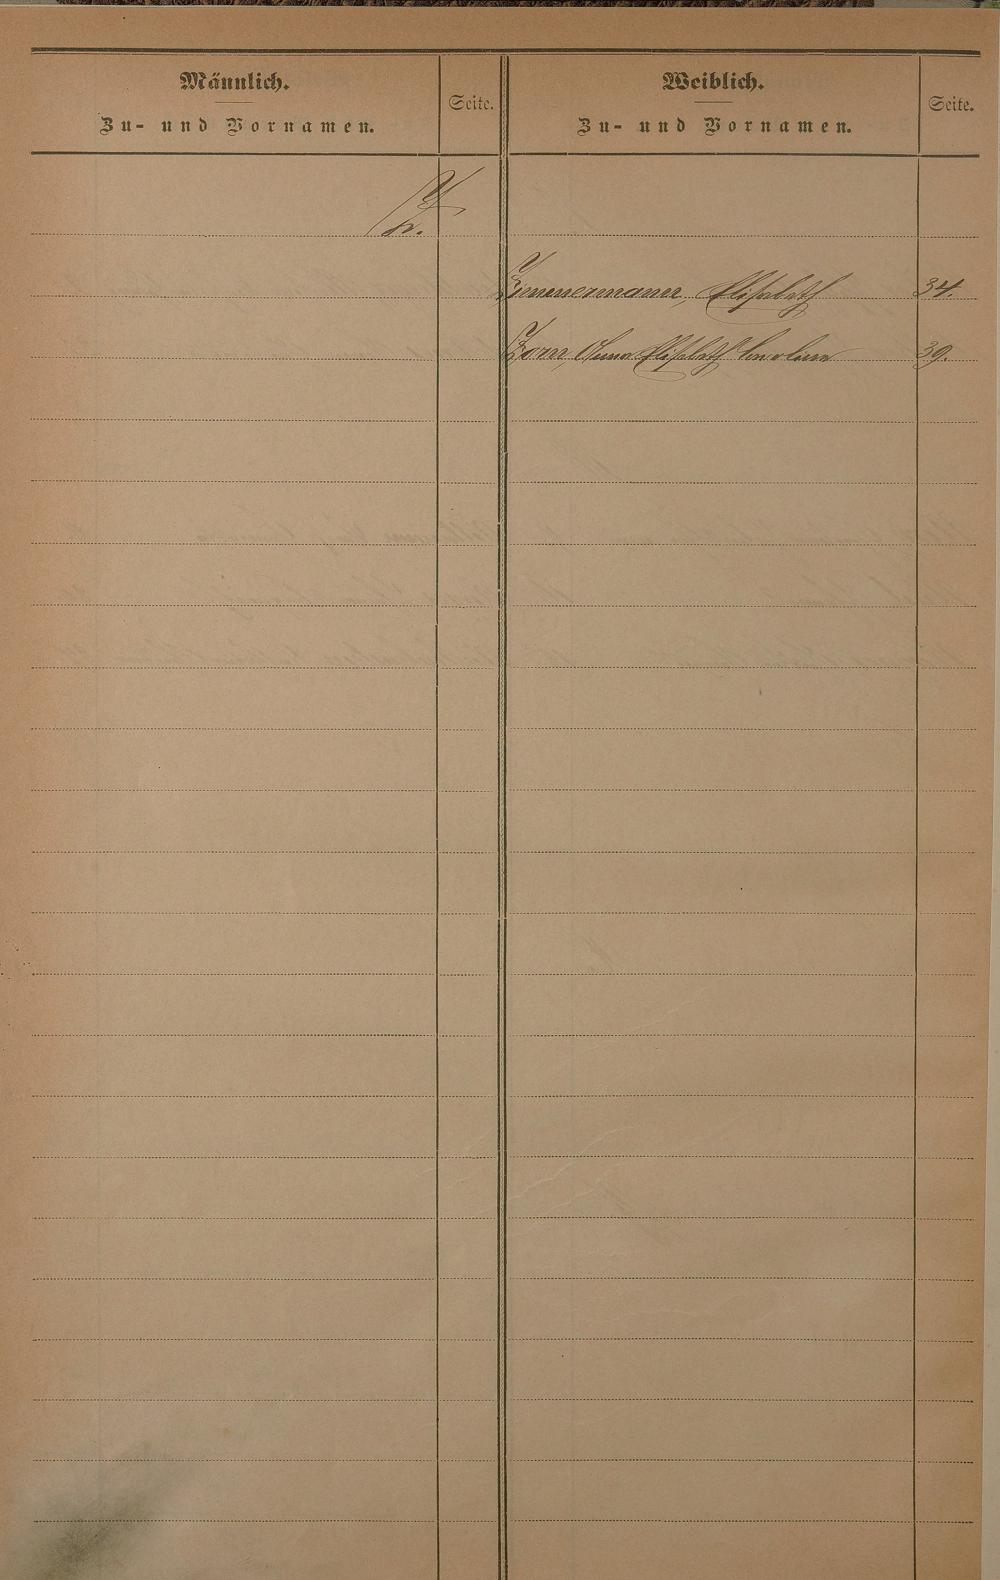 Männlich.
Zu- und Vornamen.
Seite.
Weiblich.
Zu- und Vornamen.
Seite.
Z.
Zimmermann, Elisabeth 34.
Zorn, Anna Elisabeth Caroline 39.